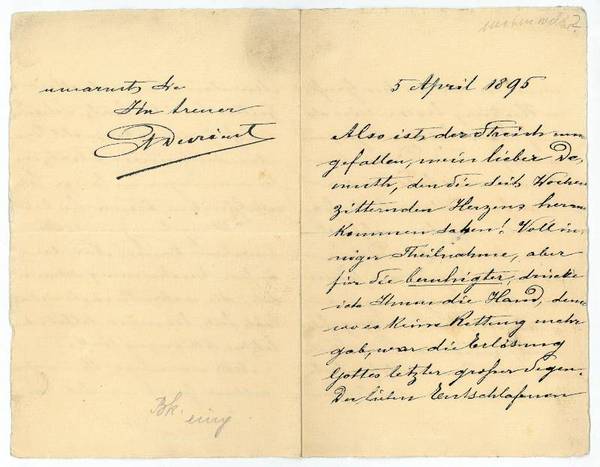 umarmt Sie
Ihr treuer
ADevrient
5 April 1895
Also ist der Streich nun
gefallen, mein lieber De,
muth, den Sie seit Wochen
zitternden Herzens heran
kommen sahen! Voll in,
niger Theilnahme, aber
für Sie beruhigter, drücke
ich Ihnen die Hand, denn
wo es keine Rettung mehr
gab, war die Erlösung
Gottes letzter großer Segen.
Der lieben Entschlafenen